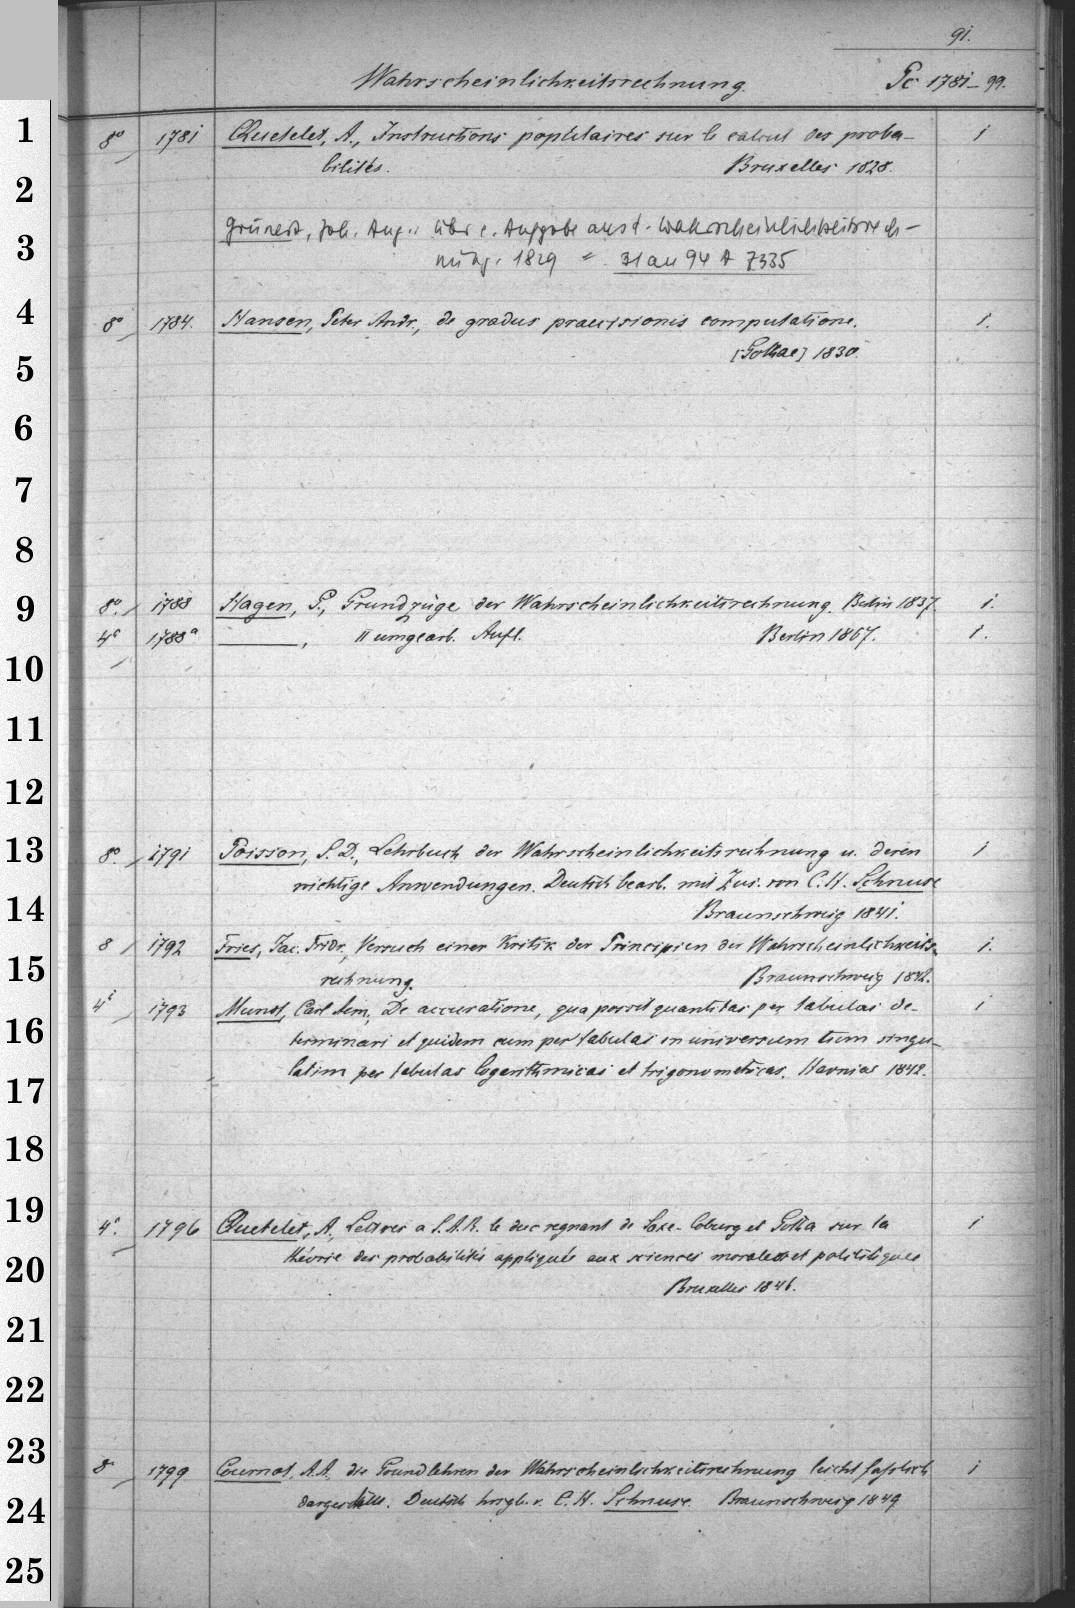 91.
Wahrscheinlichkeitsrechnung. Pc 1781–99.
1
8° 1781 Quetelet, A., Instructions populaires sur le calcul des proba-
bilités. Bruxelles 1828. 1
2
Grunert, Joh. Aug.: über e. Aufgabe aus d. Wahrscheinlichkeitsrech-
3
nung. 1829 = 31 an 94 A 7335
4
8° 1784. Hansen, Peter Andr., de gradus praecisionis computatione. 1.
[Gothae] 1830.
5
6
7
8
9
8°. 1788 Hagen, G., Grundzüge der Wahrscheinlichkeitsrechnung. Berlin 1837. 1.
4° 1788a ———, II umgearb. Aufl. Berlin 1867. 1.
10
11
12
13
8°. 1791 Poisson, S. D., Lehrbuch der Wahrscheinlichkeitsrechnung u. deren 1
wichtige Anwendungen. Deutsch bearb. mit Zus. von C. H. Schnuse
14
Braunschweig 1841.
8 1792 Fries, Jac. Fridr., Versuch einer Kritik der Principien der Wahrscheinlichkeits- 1.
15
rechnung. Braunschweig 1842.
4° 1793 Mundt, Carl Aem., De accuratione, qua possit quantitas per tabulas de- 1
16
terminari et quidem cum per tabulas in universum tum singu-
latim per tabulas logarithmicas et trigonometricas. Havniae 1842.
17
18
19
4°. 1796 Quetelet, A., Lettres a S. A. R. le duc regnant de Saxe-Coburg et Gotha sur la 1
théorie des probabilités appliquée aux sciences morales et politiques
20
Bruxelles 1846.
21
22
23
8° 1799 Cournot, A. A., die Grundlehren der Wahrscheinlichkeitsrechnung leicht fasslich 1
dargestellt. Deutsch hrsgb. v. C. H. Schnuse. Braunschweig 1849
24
25